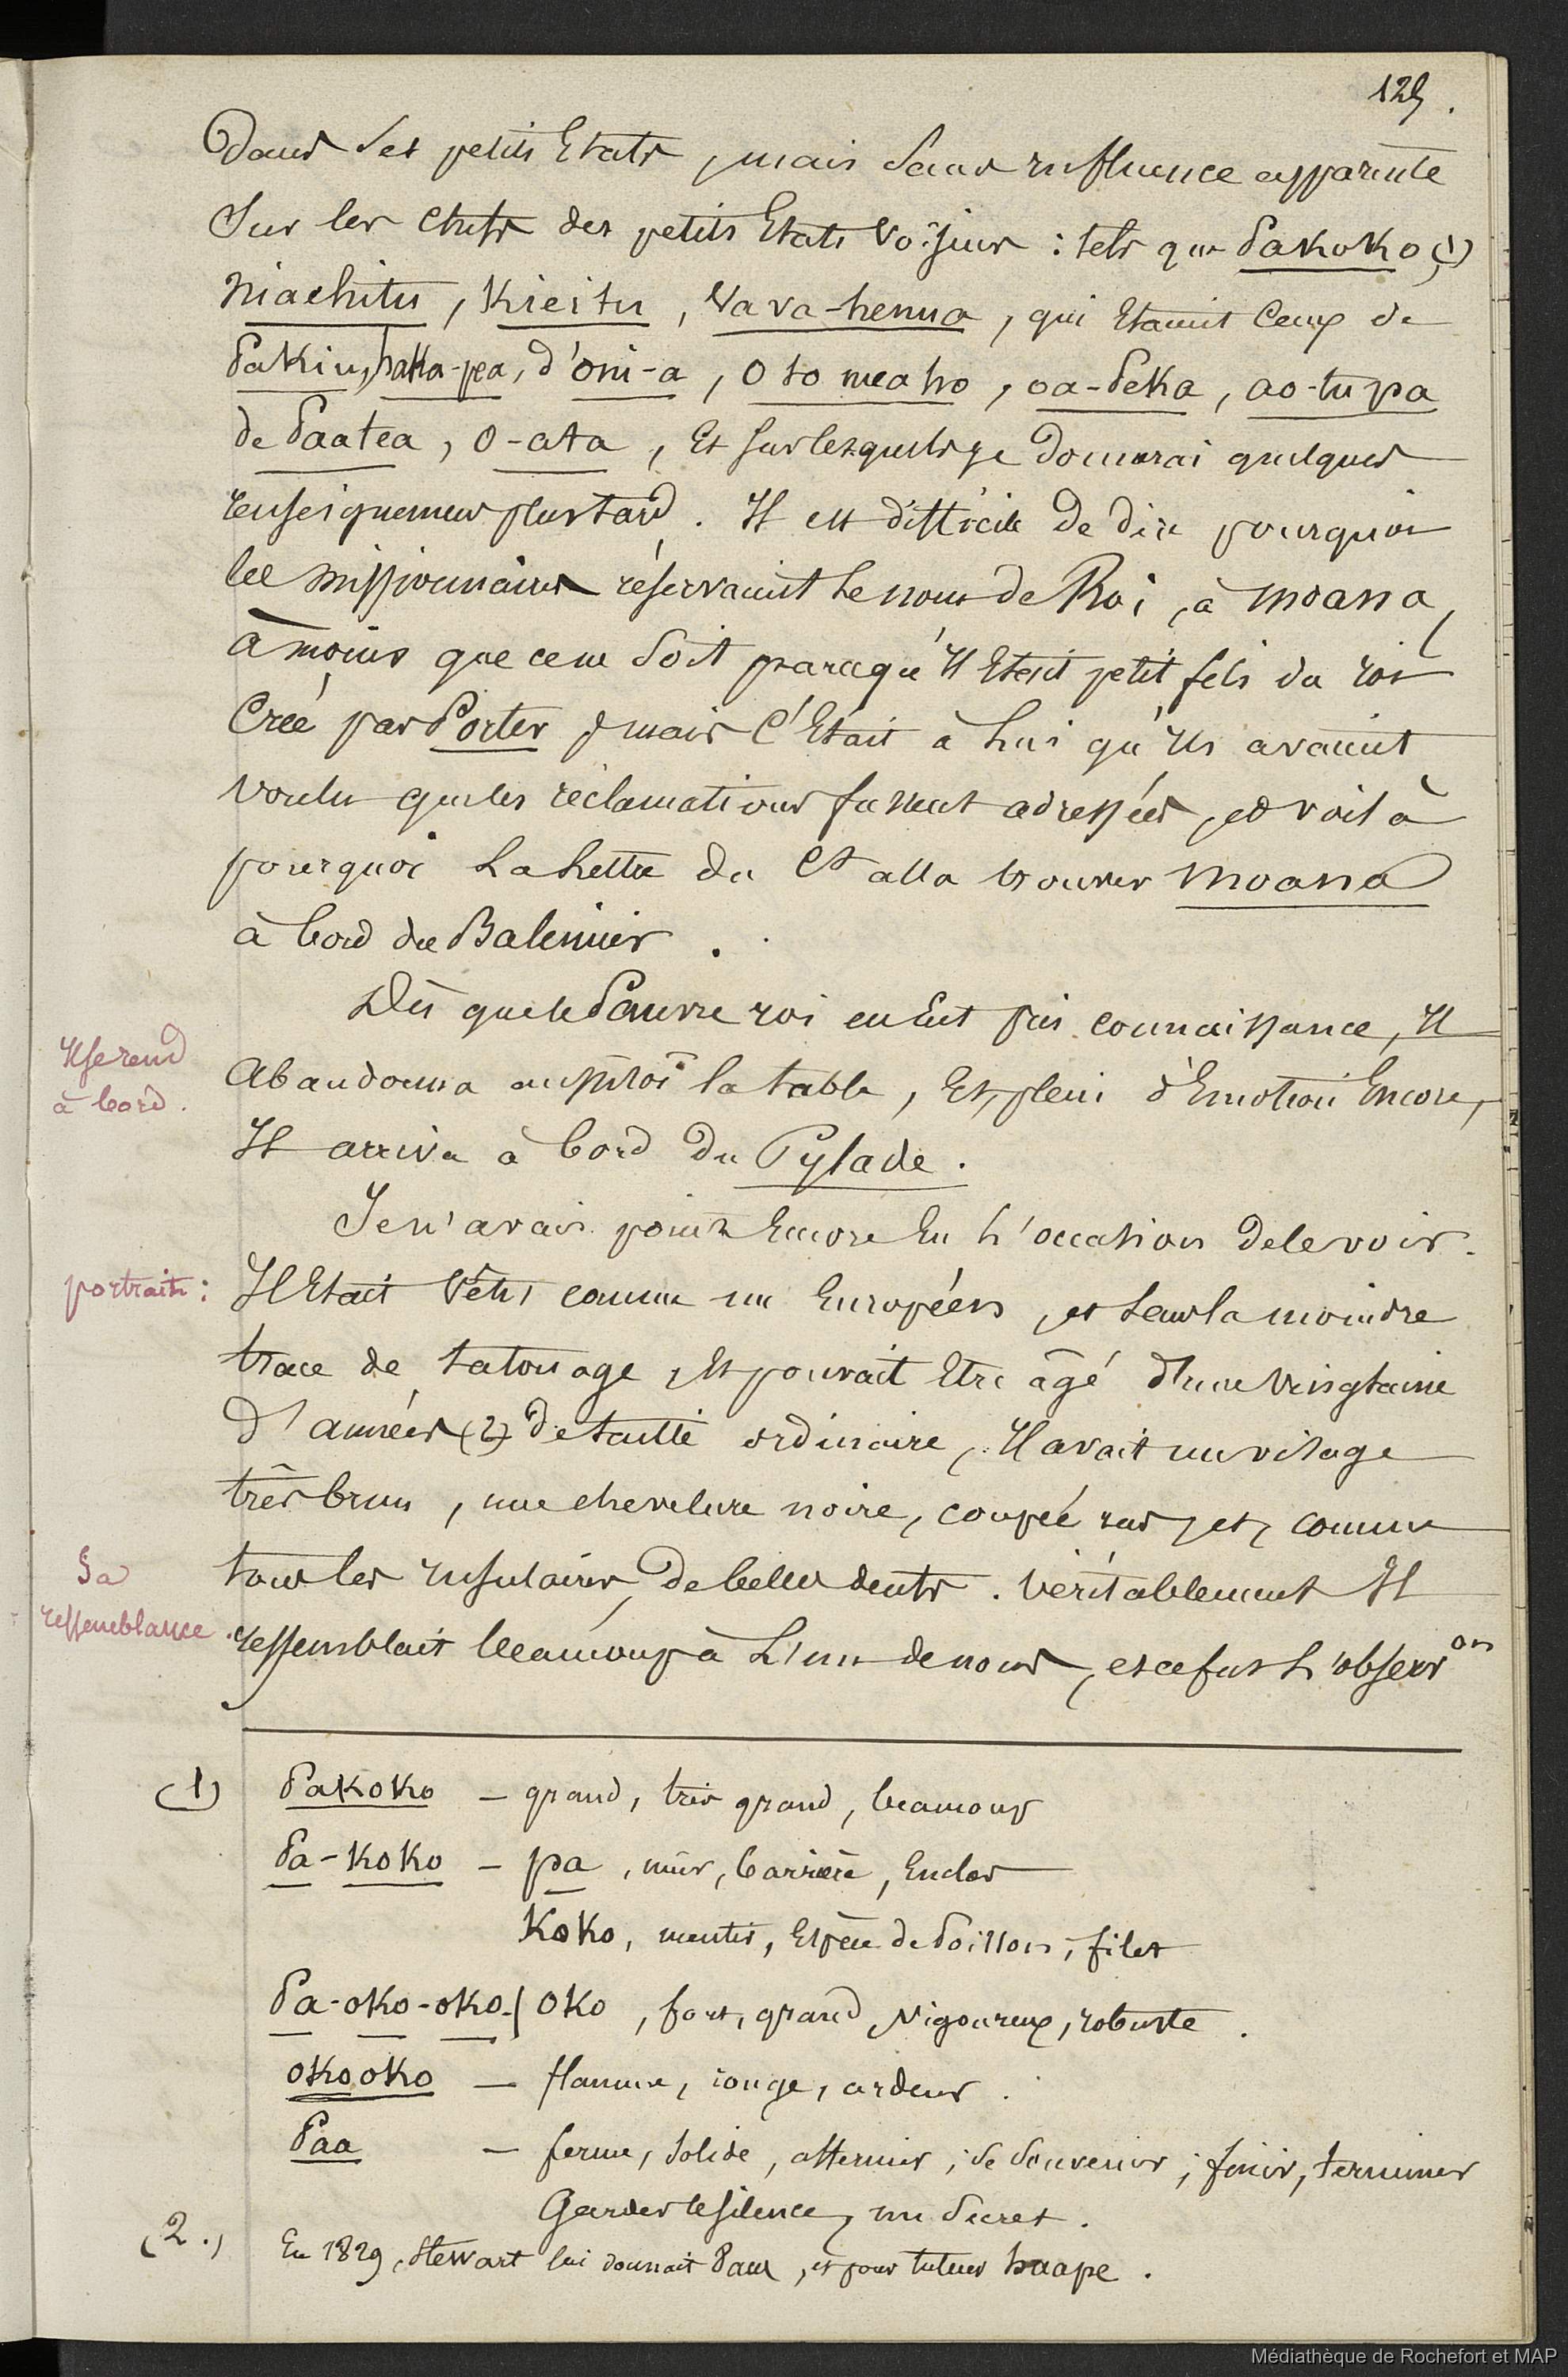 125.
Dans ses petits Etats, mais sans influence apparente
Sur les chefs des petits Etats voisins : tels que Pakoko (1)
niaehitu, Kieitu, Vava-henua, qui Etaient Ceux de
Pakiu, haka-pea, d'oni-a, O to meaho, oa-Peka, ao-tupa
de Paatea, O-ata, Et sur lesquels je Donnerai quelques
renseignemens plus tard. Il est difficile De dire pourquoi
les missionnaires réservaient le nom de Roi, à moana,
à moins que ce ne soit parcequ'il Etait petit fils du roi
Créé par Porter ; mais C'Etait à Lui qu'ils avaient
voulu que les réclamations fussent adressées, et voilà
pourquoi La Lettre du Ct alla trouver moana
à bord du Baleinier.
Dès que le Pauvre roi en Eut pris connaissance, Il
Il se rend
à bord.
Abandonna aussitôt la table, Et, plein d'Emotion Encore,
Il arriva à bord Du Pylade.
Je n'avais point Encore Eu L'occasion de le voir.
portrait :
Il Etait Vêtu comme un Européen, et sans la moindre
trace de tatouage, Et pouvait Etre âgé d'une vingtaine
D'années (2) De taille ordinaire, Il avait un visage
très brun, une chevelure noire, coupée ras, et, comme
Sa
ressemblance.
tous les Insulaires, De belles dents. Véritablement Il
ressemblait beaucoup à L'un de nous, et ce fut L'observon
(1) Pakoko — grand, très grand, beaucoup
Pa-koko — pa, mur, barrière, Enclos
Koko, mentir, Espèce de Poisson, filet
Pa-oko-oko-/ oko, fort, grand, Vigoureux, robuste.
okooko — flamme, rouge, ardeur.
Paa — ferme, Solide, affermir ; se souvenir ; finir, terminer
Garder le silence, un Secret.
(2.) En 1829, Stewart lui donnait Paux, et pour tuteur haape.
Médiathèque de Rochefort et MAP